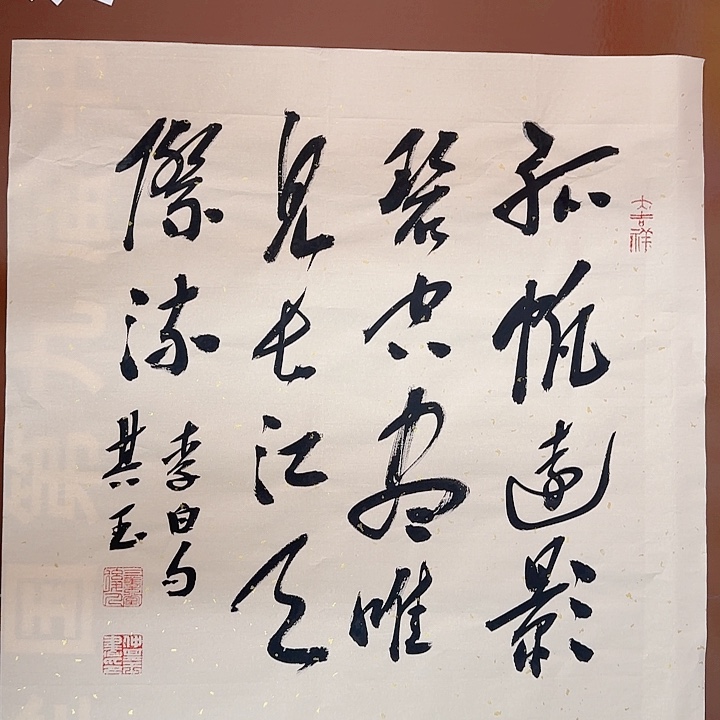 大吉祥
孤帆遠影
碧空盡唯
見長江天
際流
李白句
其玉